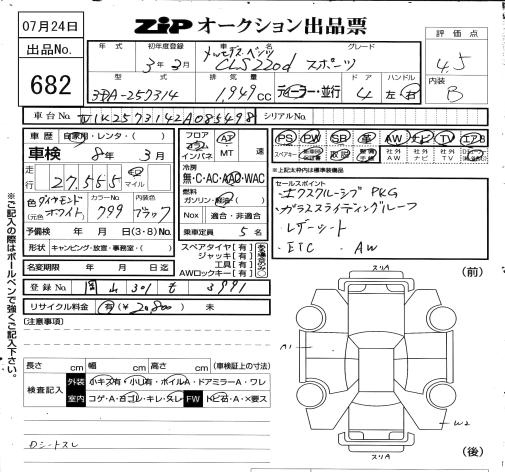 07月24日
ZIP オークション出品票
出品No.
682
年式
初年度登録
車名
グレード
評価点
3年3月
メルセデス・ベンツ
CLS220d スポーツ
4.5
型式
排気量
ドア
ハンドル
内装
3DA-257314
1,949cc
ディーラー・並行
4
左・右
B
車台No.
W1K2573142A085498
シリアルNo.
車歴
自家用・レンタ・( )
車検
8年3月
走行
27,555
km
マイル
色
ダイヤモンドホワイト
(元色 )
カラーNo.
799
内装色
ブラック
予備検
年 月 日(3・8)No.
形状
キャンピング・放置・事務室・( )
名変期限
年 月 日迄
登録No.
3991
リサイクル料金
有(¥ 20,800) 未
フロア
コラム
インパネ
AT
MT
速
冷房
無・C・AC・AAC・WAC
燃料
ガソリン・軽油( )
Nox
適合・非適合
乗車定員
5名
スペアタイヤ[有]
ジャッキ[有]
工具[有]
AWロックキー[有]
ある場合のみ○
PS
PW
SR
革
AW
ナビ
TV
エアB
スペアキー
取説
社外AW
社外ナビ
社外TV
上記太枠内は標準装備品
セールスポイント
・エクスクルーシブPKG
・ガラススライディングルーフ
・レザーシート
・ETC ・AW
※ご記入の際はボールペンで強くご記入下さい。
[注意事項]
長さ cm
幅 cm
高さ cm
(車検証上の寸法)
検査記入
外装
小キズ有・小凹有・ボイルA・ドアミラーA・ワレ
室内
コゲ・A・ヨゴレ・キレ・スレ
FW
トビ石・A・X要ス
Dシートスレ
スリA
(前)
A1
W2
スリA
(後)